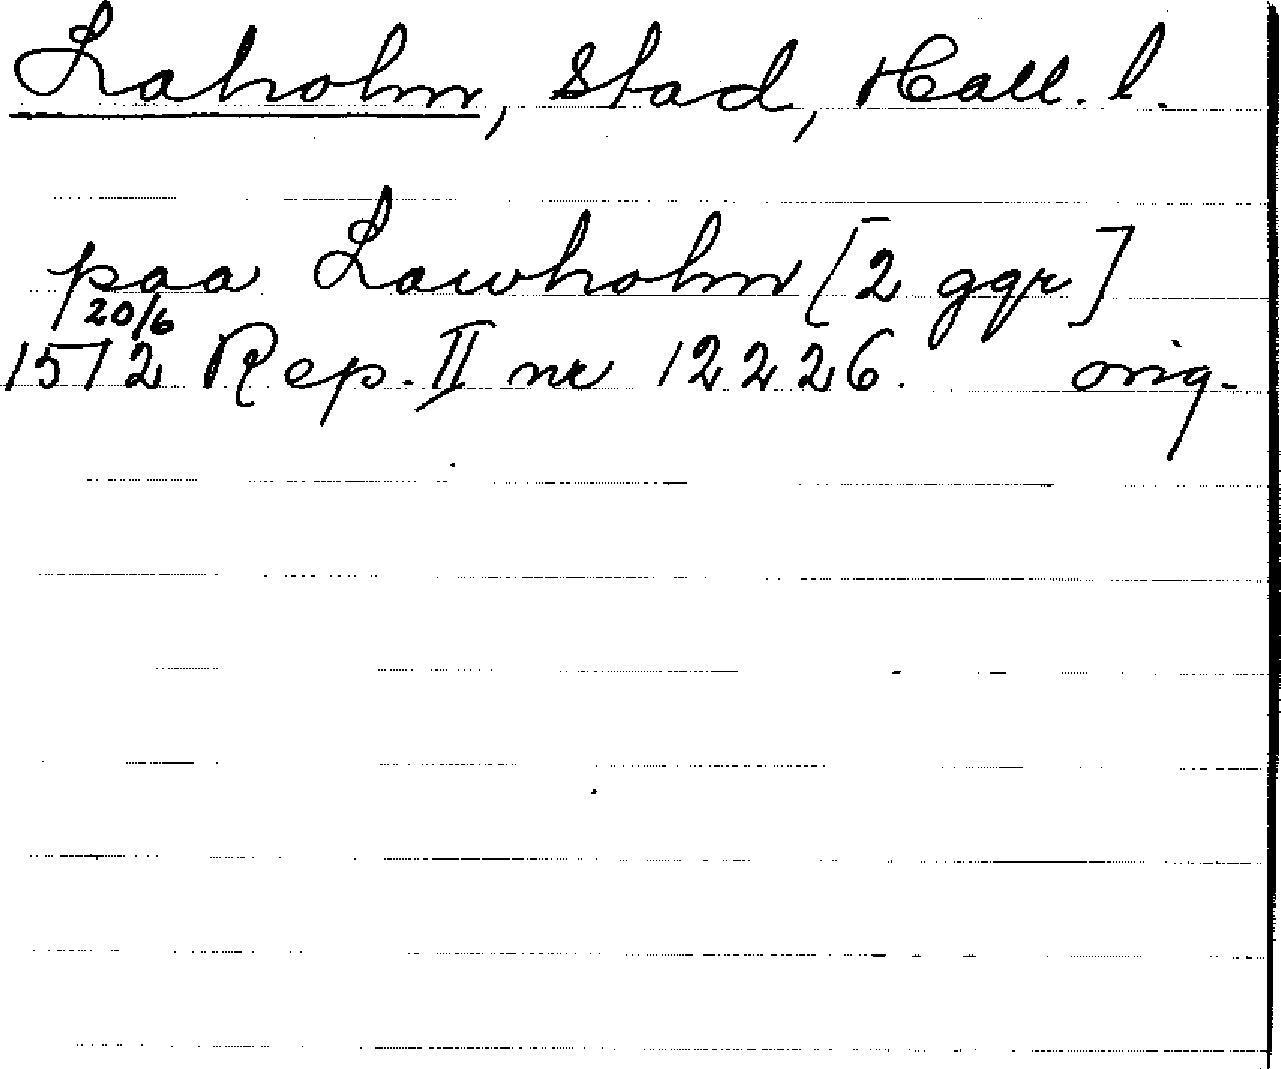 Laholm, stad, Hall. l.
paa Lawholm [2 ggr]
20/6
1572 Rep. II nr 12226. orig.